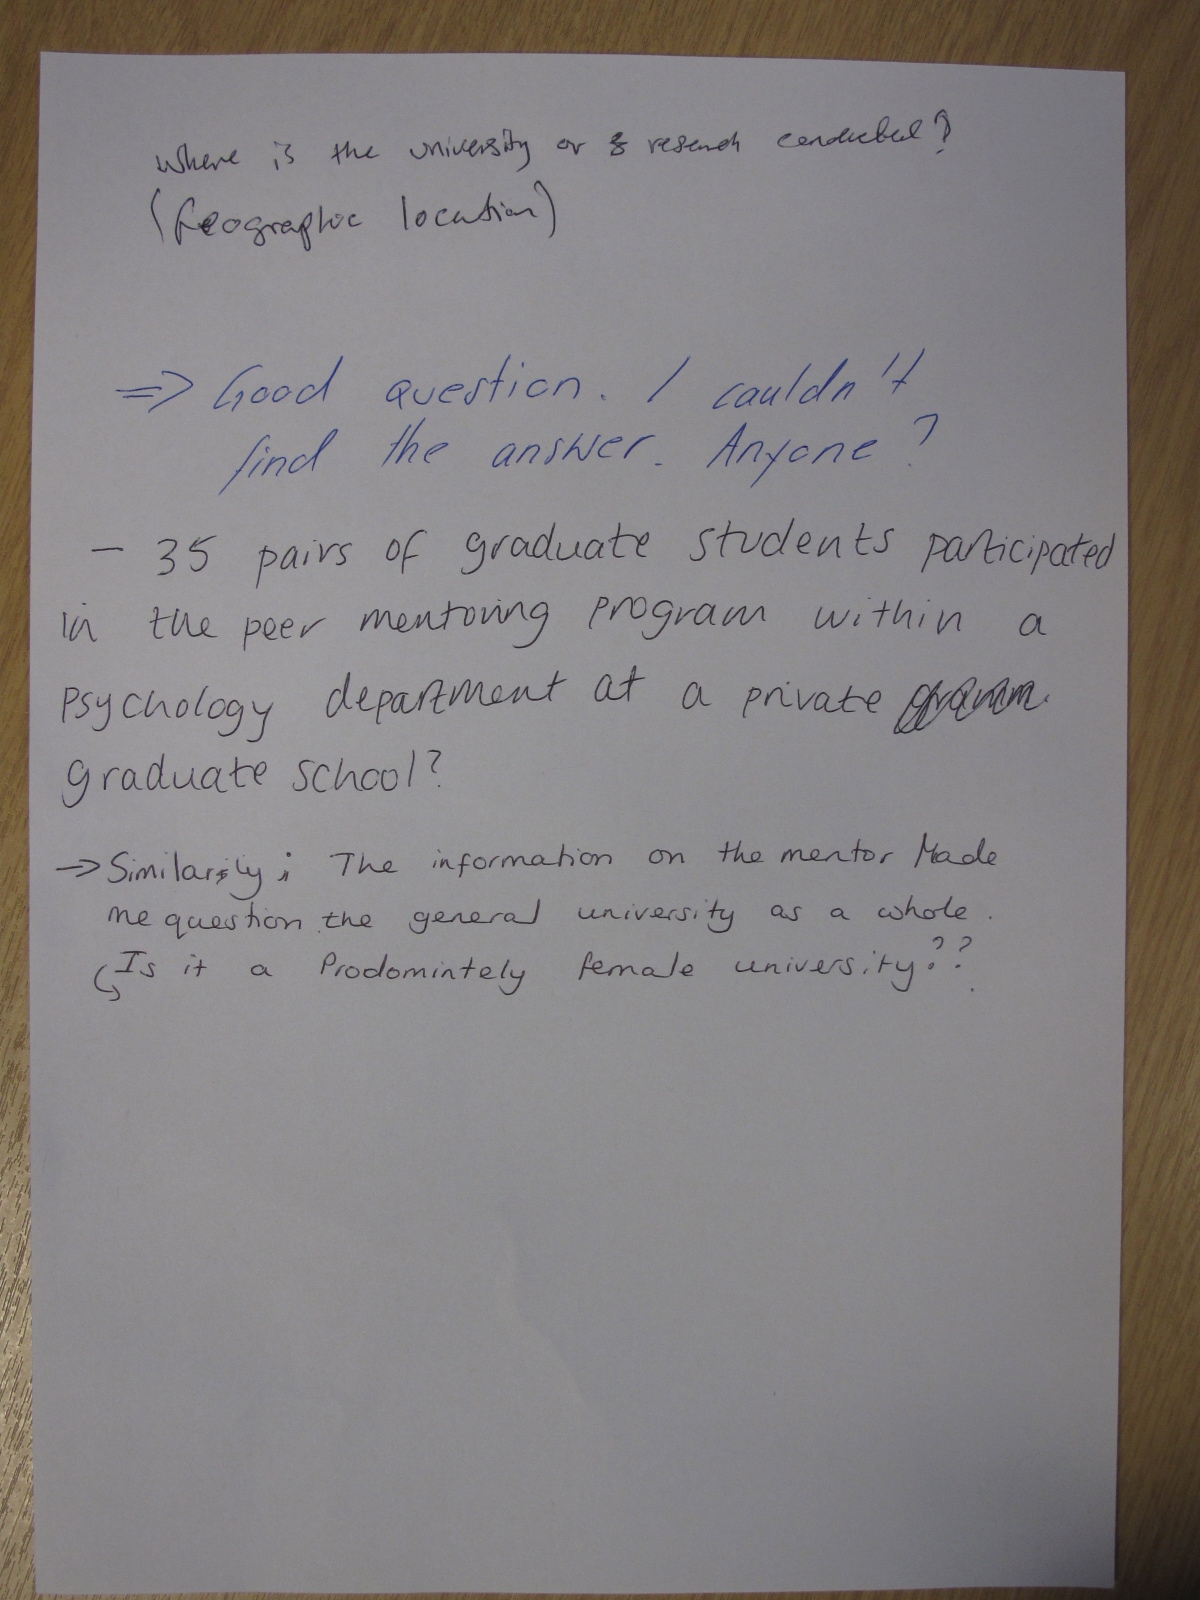 Where is the university or research conducted?
(Geographic location)
=> Good question. I couldn't
find the answer. Anyone?
- 35 pairs of graduate students participated
in the peer mentoring program within a
psychology department at a private
graduate school?
-> Similarily; The information on the mentor Made
me question the general university as a whole.
Is it a Prodomintely female university??